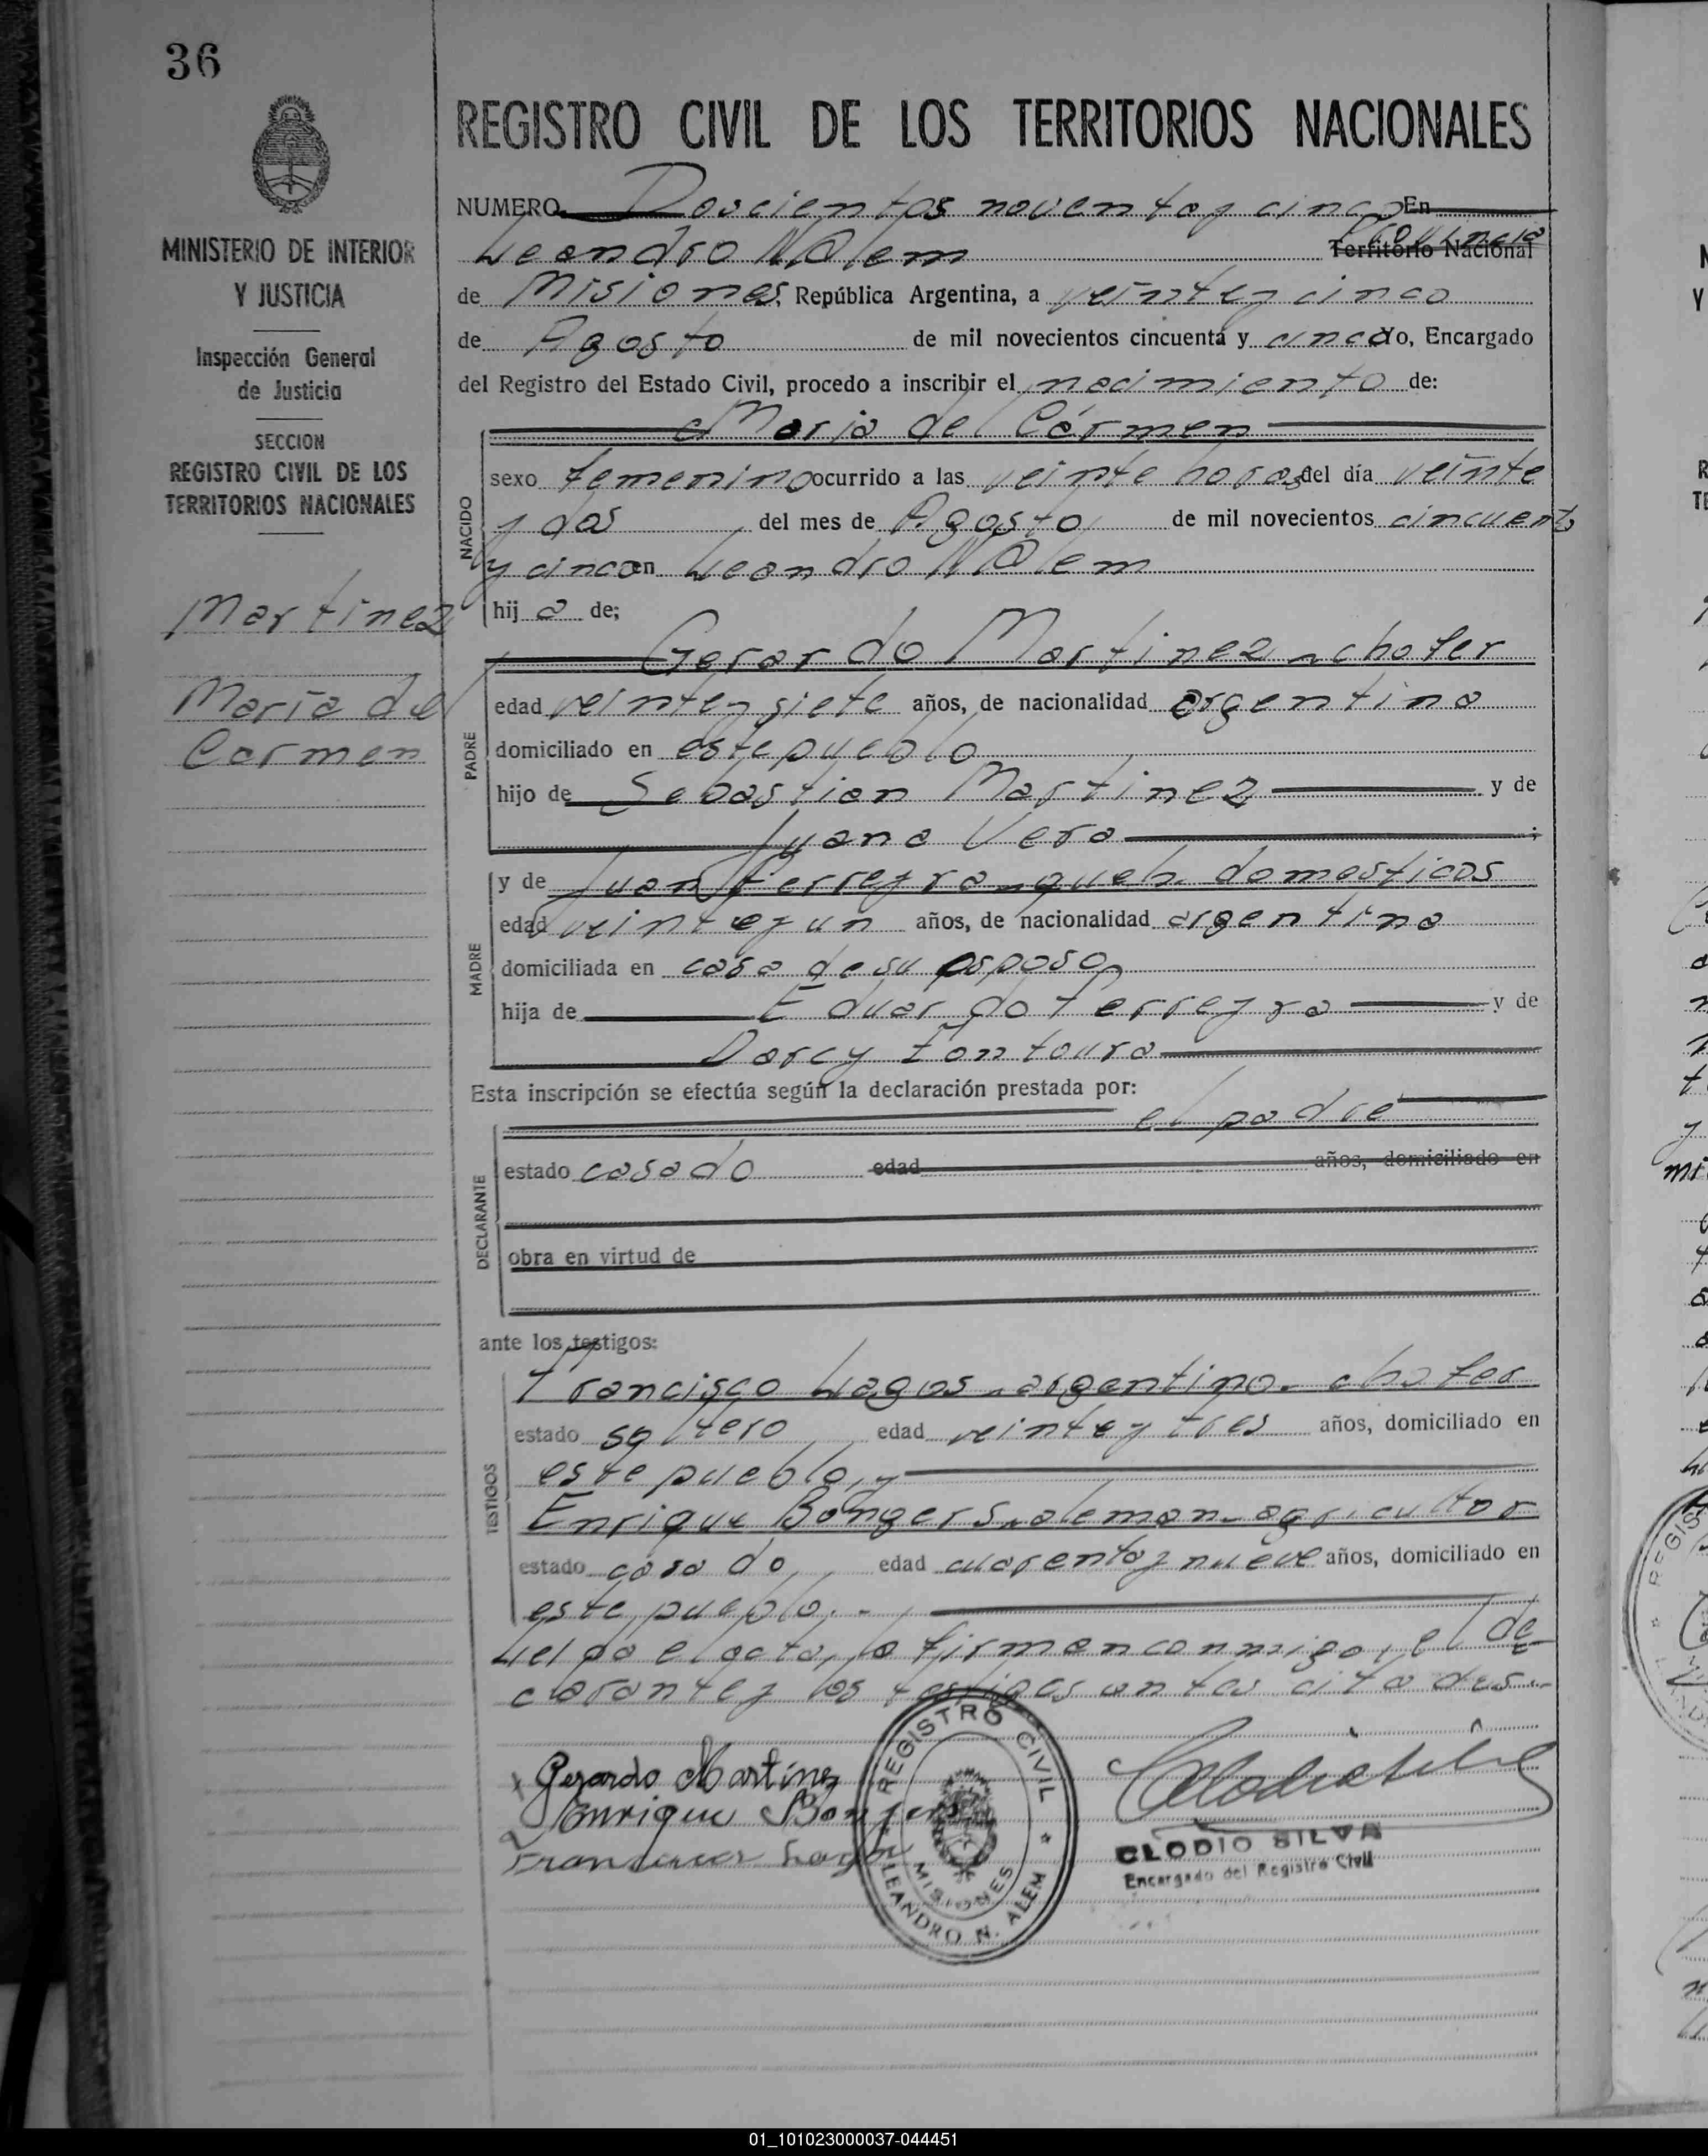 36
MINISTERIO DE INTERIOR
Y JUSTICIA
Inspección General
de Justicia
SECCION
REGISTRO CIVIL DE LOS
TERRITORIOS NACIONALES
Martinez
María del
Carmen
REGISTRO CIVIL DE LOS TERRITORIOS NACIONALES
NUMERO Doscientos noventay cinco En
Leandro N Alem Provincia Territorio Nacional
de Misiones, República Argentina, a veintey cinco
de Agosto de mil novecientos cincuenta y cinco Yo, Encargado
del Registro del Estado Civil, procedo a inscribir el nacimiento de:
Maria del Cármen
NACIDO
sexo femenino ocurrido a las veinte horas del día veinte
y dos del mes de Agosto de mil novecientos cincuenta
y cinco en Leandro N Alem
hij a de;
Gerardo Martinez chofer
PADRE
edad veintey siete años, de nacionalidad argentina
domiciliado en este pueblo
hijo de Sebastian Martinez y de
Juana Vera
MADRE
y de Ferreyra queh. domesticos
edad veinteyun años, de nacionalidad argentina
domiciliada en casa de su esposo
hija de Eduardo Ferreyra y de
Darcy Fontoura
Esta inscripción se efectúa según la declaración prestada por:
el padre
DECLARANTE
estado casado edad años, domiciliado en
obra en virtud de
ante los testigos:
TESTIGOS
Francisco Lagos argentino. chofer
estado soltero edad veintey tres años, domiciliado en
este pueblo, y
Enrique Bongers aleman agricultor
estado casado, edad cuarentay nueve años, domiciliado en
este pueblo.
Leida el acta, la firman conmigo, el de
clarantey los testigos antes citados.
Gerardo Martinez
Enrique Bongers
Francisco Lagos
REGISTRO CIVIL
MISIONES
LEANDRO N. ALEM
CLODIO SILVA
Encargado del Registro Civil
01_101023000037-044451